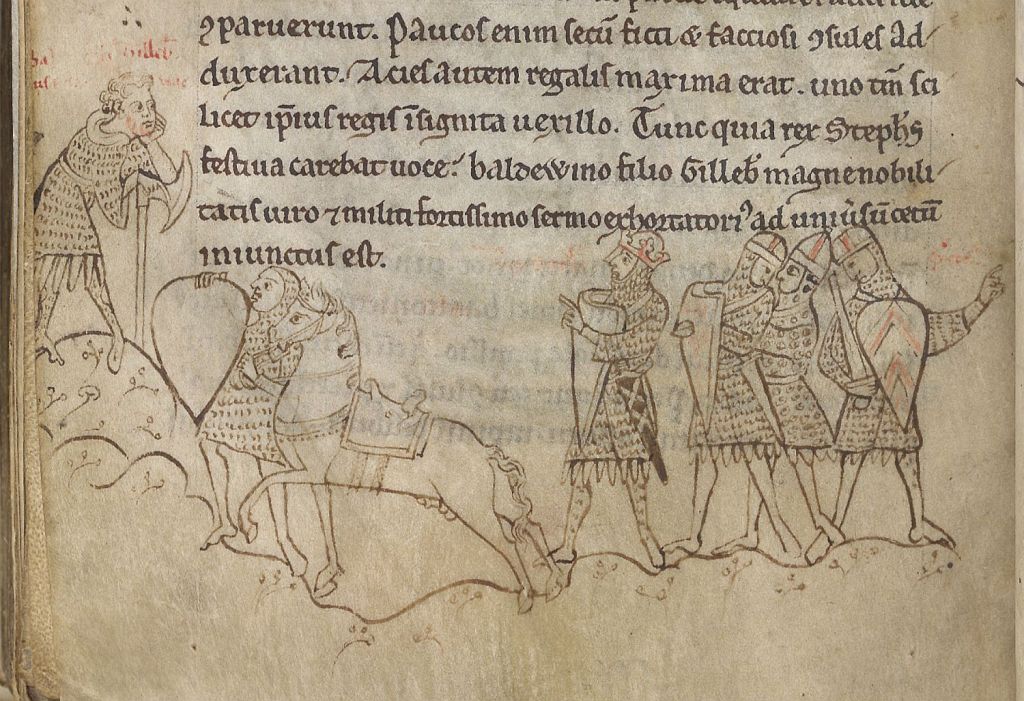 ꝯparuerunt. Paucos enim secū ficti & factiosi ꝯsules ad-
duxerant. Acies autem regalis maxima erat. uno tm̄ sci
licet ip̄ius regis īsignita uexillo. Tunc quia rex Stephs̄
festiua carebat uoce. baldewino filio Gilleb̄ magne nobili-
tatis uiro ⁊ militi fortissimo sermo exhortatori᾽ ad uniūsū cetū
iniunctus est.